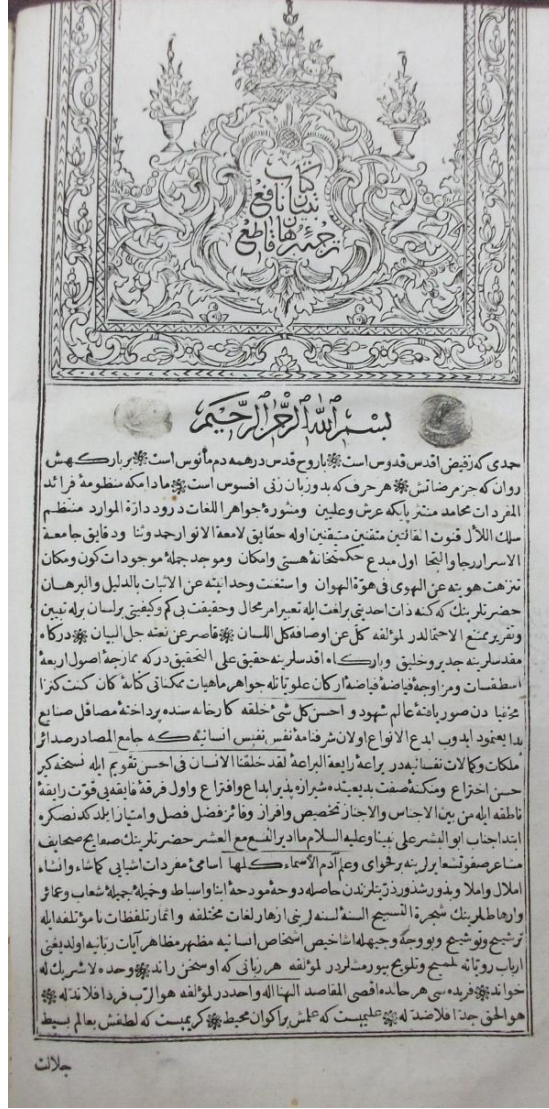 كتاب
تبيان نافع
ترجمۀ برهان قاطع
بسم الله الرحمن الرحيم
حمدى كه زفيض اقدس قدوس است ❊ باروح قدس در همه دم مأنوس است ❊ بر باركهش
روان كه جز مرضاتش ❊ هر حرف كه بد و زبان زنى افسوس است ❊ مادامكه منظومۀ فرائد
المفردات محامد منتثر پايكه عرش وعليين ومنثورۀ جواهر اللغات درود دازة الموارد منتظم
سلك اللآل قنوت القانتين متقنين متيقنين اوله حقايق لامعة الانوار حمد وثنا ودقايق جامعة
الاسرار رجا والتجا اول مبدع حكمتخانۀ هستى وامكان وموجد جملۀ موجودات كون ومكان
تنزهت هويته عن الهوى فى هوّة الهوان واستغنت وحدانيته عن الاثبات بالدليل والبرهان
حضرتلرينك كه كنه ذات احديتى براغت ايله تعبير امر محال وحقيقت بى كم وكيفيتى بر لسان برله تبيين
وتقرير ممتنع الاحتمالدر لمؤلفه كلّ عن اوصافه كل اللسان ❊ قاصر عن نعته جل البيان ❊ دركاه
مقدسلرينه جدير وخليق وباركاه اقدسلرينه حقيق على التحقيق دركه ممازجۀ اصول اربعۀ
اسطقسات ومزاوجۀ فياضۀ اركان علويات ايله جواهر ماهيات ممكناتى كتابۀ كان كنت كنزا
مخفيا دن صور يافتۀ عالم شهود و احسن كل شئ خلقه كارخانه سنده پرداختۀ مصاقل صنايع
بدايعنمود ايدوب ابدع الانواع اولان شرفنامۀ نفس نفيس انسانيه كه جامع المصادر صدائر
ملكات وكمالات نفسانيه در براعة رايعة البراعۀ لقد خلقنا الانسان فى احسن تقويم ايله نسخۀ كبر
حسن اختراع ومكنۀ صفت بديعيتده شيرازه پذير ابداع وافتراع واول فرقۀ فايقه يى قوت رايقۀ
ناطقه ايله من بين الاجناس والاجناز تخصيص وافراز وفائز فضل فصل وامتياز ايلدكدنصكره
ابتدا جناب ابو البشر على نبينا وعليه السلام ما ادير الفسع مع العشر حضرتلرينك صفايح صحايف
مشاعر صفوتشعارلرينه بر فحواى وعلم آدم الاسماء كلها اسامئ مفردات اشيايى كماشاء وانشاء
املال واملا وبذور شذور ذريتلرندن حاصله دوحۀ مودحۀ ابنا واسباط وخميلۀ جميلۀ شعاب وعمائر
وارهاطلرينك شجرة التسبيح السنۀ لسنه لرينى ازهار لغات مختلفه واثمار تلفظات نامؤتلفه ايله
ترشيح وتوشيح وبو وجۀ وجيهله اشاخيص اشخاص انسانيه مظهر مظاهر آيات ربانيه اولديغنى
ارباب روياته تلميح وتلويح بيورمشلردر لمؤلفه هر ربانى كه او سخن راند ❊ وحده لا شريك له
خواند ❊ فريده سى هر حالده اقصى المقاصد الهنا اله واحددر لمؤلفه هو الرّب فردا فلا ند له ❊
هو الحق جدّا فلا ضد له ❊ عليميست كه علمش بر اكوان محيط ❊ كريميست كه لطفش بعالم بسيط
جلالت